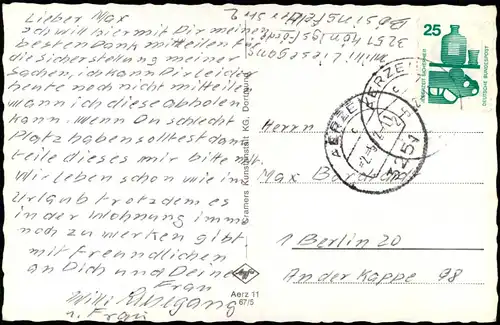 Lieber Max
ich will hiermit Dir meinen
besten Dank mitteilen für
die Sicherstellung meiner
Sachen, ich kann Dir leider
heute noch nicht mitteilen
wann ich diese abholen
kann. Wenn Du schlecht
Platz haben solltest dann
teile dieses mir bitte mit
Wir leben schon wie im
Urlaub trotzdem es
in der Wohnung immer
noch zu werken gibt
mit freundlichen
an Dich und Deine
Frau
Willi Liesegang
u. Frau
Willi Liesegang
3251 Königsförde
Bösingfeld Str 2
Kramers Kunstanstalt KG, Dortmund
Aerz 11
67/5
25
DEUTSCHE BUNDESPOST
AERZEN
3251
Herrn
Max
1 Berlin 20
An der Kappe 98